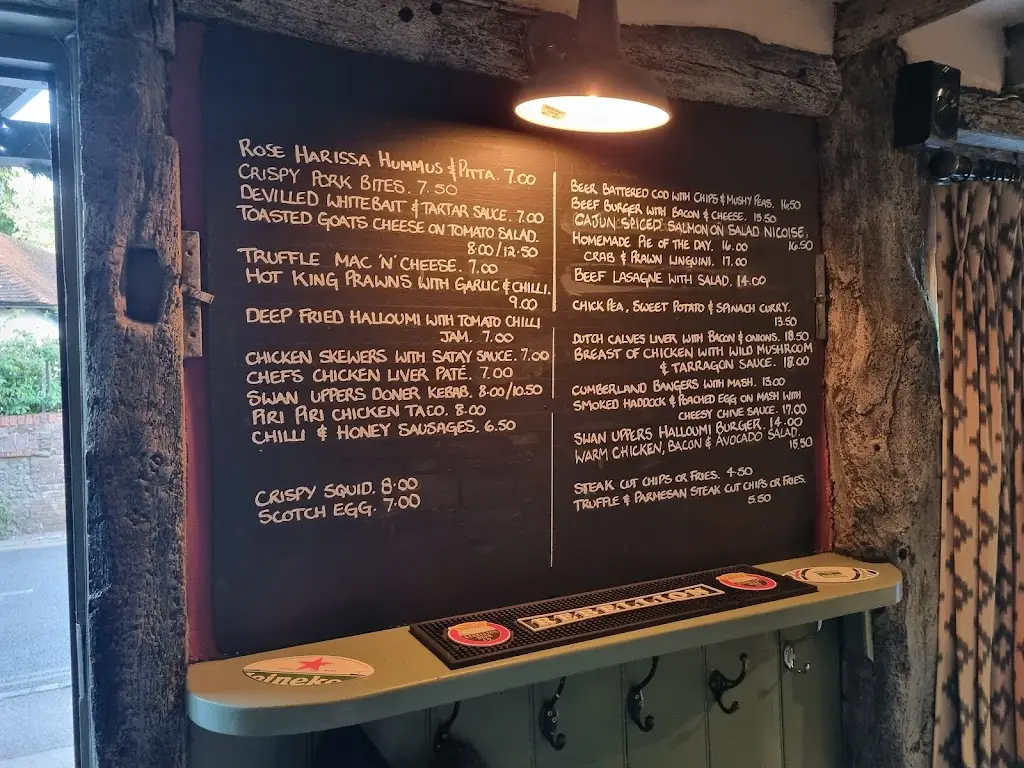 ROSE HARISSA HUMMUS & PITTA. 7.00
CRISPY PORK BITES. 7.50
DEVILLED WHITEBAIT & TARTAR SAUCE. 7.00
TOASTED GOATS CHEESE ON TOMATO SALAD.
8.00/12.50
TRUFFLE MAC 'N' CHEESE. 7.00
HOT KING PRAWNS WITH GARLIC & CHILLI.
9.00
DEEP FRIED HALLOUMI WITH TOMATO CHILLI
JAM. 7.00
CHICKEN SKEWERS WITH SATAY SAUCE. 7.00
CHEFS CHICKEN LIVER PATÉ. 7.00
SWAN UPPERS DONER KEBAB. 8.00/10.50
PIRI PIRI CHICKEN TACO. 8.00
CHILLI & HONEY SAUSAGES. 6.50
CRISPY SQUID. 8.00
SCOTCH EGG. 7.00
BEER BATTERED COD WITH CHIPS & MUSHY PEAS. 16.50
BEEF BURGER WITH BACON & CHEESE. 15.50
CAJUN SPICED SALMON ON SALAD NICOISE.
16.50
HOMEMADE PIE OF THE DAY. 16.00
CRAB & PRAWN LINGUINI. 17.00
BEEF LASAGNE WITH SALAD. 14.00
CHICK PEA, SWEET POTATO & SPINACH CURRY.
13.50
DUTCH CALVES LIVER WITH BACON & ONIONS. 18.50
BREAST OF CHICKEN WITH WILD MUSHROOM
& TARRAGON SAUCE. 18.00
CUMBERLAND BANGERS WITH MASH. 13.00
SMOKED HADDOCK & POACHED EGG ON MASH WITH
CHEESY CHIVE SAUCE. 17.00
SWAN UPPERS HALLOUMI BURGER. 14.00
WARM CHICKEN, BACON & AVOCADO SALAD.
15.50
STEAK CUT CHIPS OR FRIES. 4.50
TRUFFLE & PARMESAN STEAK CUT CHIPS OR FRIES.
5.50
REBELLION
Heineke